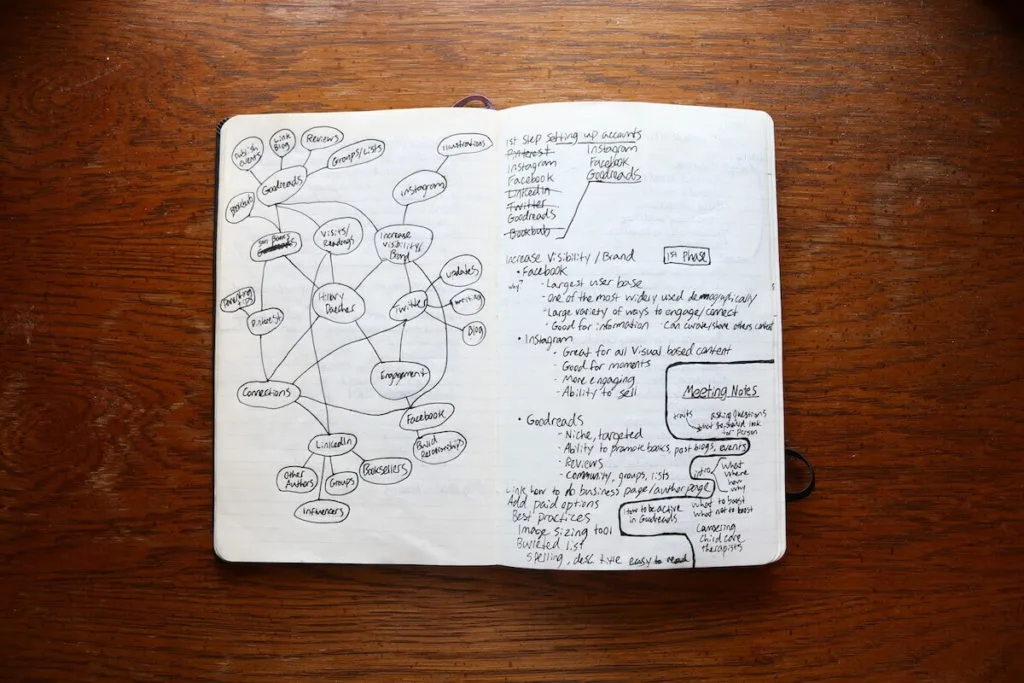 Link
Blog
Reviews
Groups/Lists
events
Goodreads
Bookbub
Goodreads
Visits/
Readings
Increase
visibility/
Brand
Instagram
Illustrations
Updates
Blog
Twitter
Pinterest
Connections
Engagement
Facebook
Build
Relationships
LinkedIn
Booksellers
Groups
Other
Authors
Influencers
1st step setting up accounts
Pinterest
Instagram
Facebook
LinkedIn
Twitter
Goodreads
Bookbub
Instagram
Facebook
Goodreads
Increase Visibility / Brand
1st Phase
• Facebook
why?
- Largest user base
- One of the most widely used demographically
- Large variety of ways to engage/connect
- Good for information - Can curate/share others content
• Instagram
- Great for all visual based content
- Good for moments
- More engaging
- Ability to sell
• Goodreads
- Niche, targeted
- Ability to promote books, post blogs, events
- Reviews
- Community, groups, lists
Link how to do business page/author page
Add paid options
Best practices
Image sizing tool
list
spelling, desc title easy to read
Meeting Notes
traits
asking questions
look
for person
intro
what
where
how
why
How to be active
in Goodreads
what to boost
what not to boost
Child care
therapists